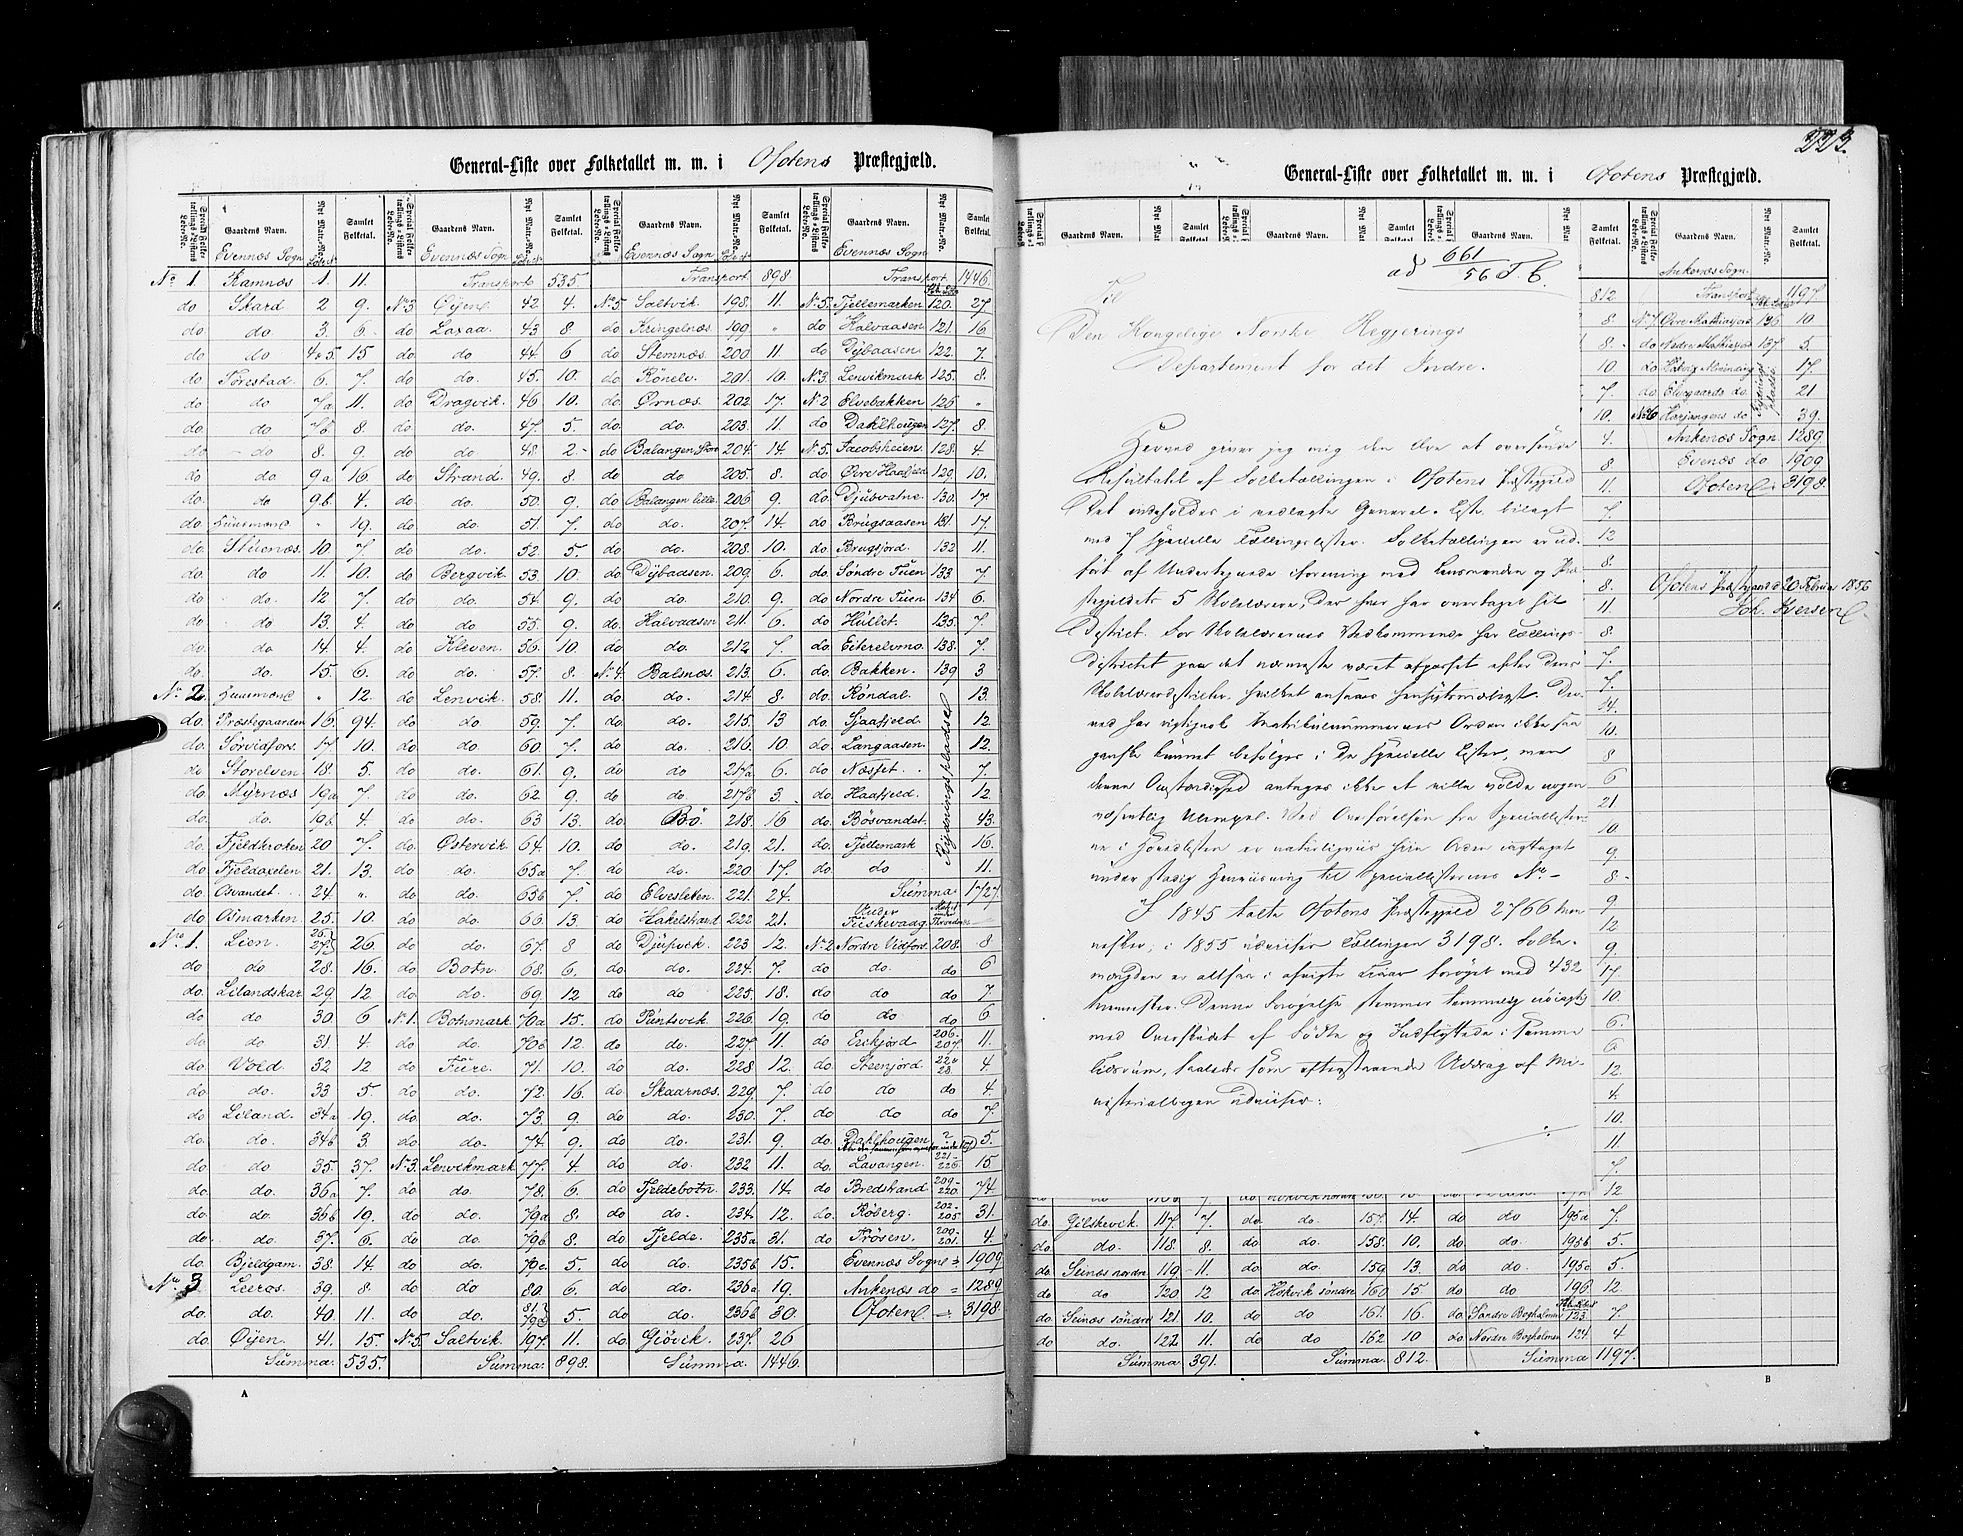 General-Liste over Folketallet m. m. i Ofotens Præstegjæld.
Gaardens Navn. Samlet Folketal. Gaardens Navn. Samlet Folketal. Gaardens Navn. Samlet Folketal. Gaardens Navn. Samlet Folketal.
Evennæs Sogn Evennæs Sogn Evennæs Sogn Evennæs Sogn
No 1. Ramnæs 1 11. Transport 535 Transport 898 Transport 1446.
do Skard 2 9. No 3 Øyen 42 4. No 5 Saltvik 198. 11. No 5. Fjellemarken 120. 27
do do 3. 6. do Laxaa 43 8. do Kringelnæs 199 " do Halvaasen 121. 16
do do 4&5. 15 do do 44. 6 do Stemnæs. 200 11. do Dÿbaasen 122. 7.
do Forestad 6. 7. do do. 45. 10. do Rönelv. 201. 10. No 3. Lenvikmark 125. 8.
do do 7a 11. do Dragvik 46 10. do Ørnæs. 202 17. No 2 Elvebakken 126 "
do do 7b 8. do do. 47. 5. do do. 203. 11. do Dahlhougen 127. 8
do do 8. 9. do do 48 2 do Balangen Store 204. 14 No 5. Jacobsheien 128. 4
do do 9a 16. do Strand. 49. 8. do do 205. 8. do Øvre Haafjeld 129. 10.
do do 9b 4. do do. 50. 9. do Balangen lille 206 9. do Djubvatne 130. 17
do Huusmænd " 19. do do. 51. 7. do do. 207. 14. do Brugsaasen 131. 17.
do. Stuenæs. 10. 7. do do. 52. 5. do do. 208. 10. do. Brugsjord. 132 11.
do do 11. 10. do Bergvik. 53. 10. do Dÿbaasen. 209. 6. do Söndre Tuen 133 7.
do do 12 7. do do. 54. 9. do do. 210. 9. do Nordre Tuen 134 6.
do do. 13. 4 do do. 55. 9. do Halvaasen 211. 6. do Hüllet. 135. 7.
do do 14 4. do Kleven. 56. 10. do do. 212 7. do Eiterelvmo. 138. 7.
do. do. 15. 6. do do. 57. 8. No 4. Balsnæs. 213. 6. do Bakken. 139 3
No 2. Huusmænd " 12. do Lenvik. 58. 11. do do. 214. 8. do Röndal. 13.
do. Præstegaarden 16. 94. do do 59. 7. do do. 215. 13 do 12.
do. Sörvidfors. 17. 10. do do. 60. 7. do do. 216. 10. do Langaasen. 12.
do Storelven 18. 5. do do. 61. 9. do do 217a 6. do. Næsset 7.
do Mÿrnæs 19a 7. do do. 62. 9. do do 217b 3. do Haafjeld. 12.
do. do. 19b 4. do do. 63 13. do Bö. 218. 16 do. Bösvandet. 43.
do. Fjeldkroken 20 7. do Østervik. 64. 10. do do. 219. 21. do Fjellemark 16.
do Fjeldaxelen 21. 13. do do. 65a 7. do do. 220 17. do do 11.
Rydningspladser
do Osvandet 24. " do do. 65b 7. do Elvesletten 221. 24. Summa 1727.
do Osmarken 25. 10. do do. 66. 13. do Hakelstrand 222 21.
No 1. Lien 26. 27. 26. do do. 67. 8 do Djupvik. 223 12. No 2. Nordre Vidfors. 208. 8
do do 28. 16. do Botn. 68. 6. do do. 224. 7. do do. do 6
do. Lilandskar 29. 12 do do. 69. 12 do do 225. 18. do do do 7
do do 30 6 No 1. Botnmark. 70a 15. do Püntsvik. 226. 19. do do do 6
do do 31 4. do do. 70b 12. do do. 227. 11. do Erikjord 206. 207. 11.
do Vold 32 12 do Füre. 71. 10. do do. 228 12. do Steenjord 4
do do. 33 5. do do. 72. 16 do Skaarnæs. 229. 7. do do do 4.
do Liland. 34a 19. do do. 73. 9. do do. 230. 7. do do do 7.
do. do. 34b 3. do do. 74. 9. do do. 231. 9. do Dahlhougen 5.
do do. 35. 37. No 3. Lenvikmark 77. 4. do do. 232 11. do Lavangen. 221-226. 15.
do do. 36a 7. do do. 78. 6. do Fjeldebotn. 233. 14. do Bredstrand 209-220. 74.
do. do. 36b 19. do do. 79a 8. do do. 234. 12. do. Röberg. 202-205. 31.
do. do. 37. 6. do do. 79b 8. do Fjelde. 235a 31. do Trösen. 200-201. 4.
do. Bjeldgam. 38. 14. do do. 79c 5. do do. 235b 15. Evennæs Sogn = 1909
No 3 Leeros. 39. 8. do do 80. 6. do do. 236a 19. Ankenæs do = 1289
do. do. 40 11. do do. 81. 5. do do. 236b 30. Ofoten = 3198.
do Øÿen. 41. 15. No 5. Saltvik 197. 11. do Giövik. 237. 26
Summa. 535. Summa. 898. Summa 1446.
A
223.
General-Liste over Folketallet m. m. i Ofotens Præstegjæld.
ad 661/56 T. C.
Til
Den Kongelige Norske Regjerings
Departement for det Indre.
Herved giver jeg mig den Ære at oversende
Resultatet af Folketællingen i Ofotens Præstegjeld
Det indeholdes i vedlagte General-Liste bilagt
med 7 specielle Tællingslister. Folketællingen er ud-
ført af Undertegnede i forening med Lensmanden og Præ-
stegjeldets 5 Skolelærere, der hver har overtaget sit
District. For Skolelærernes Vedkommende har Tællings-
districtet paa det nærmeste været afpasset efter deres
Skolelærerdistrikter, hvilket ansaaes hensigtsmæssigst. Der-
ved har rigtignok Matrikulnummernes Orden ikke saa
ganske kunnet befølges i de specielle Lister, men
denne Omstændighed antages ikke at ville volde nogen
væsentlig Ulempe. Ved Overførelsen fra Speciallister-
ne i Hovedlisten er naturligviis hiin Orden iagttaget
under stadig Henviisning til Speciallisternes No –
I 1845 talte Ofotens Præstegjeld 2766 Men-
nesker; i 1855 udviser Tællingen 3198. Folke-
mængden er altsaa i afvigte Tiaar forøget med 432
Mennesker. Denne Forøgelse stemmer temmelig nøiagtig
med Overskudet af Fødte og Indflyttede i samme
Tidsrum, saaledes som efterstaaende Uddrag af Mi-
nisterialbogen udviser:
Gaardens Navn. Samlet Folketal.
Ankenæs Sogn.
812 Transport 1197
8 No 7 Øvre Mathisjord 136 10
8 do Nedre Mathisjord 137 5.
10. do 17
7. do Elvegaards do. 21
10. No 6 Herjangens do 39.
4. Ankenæs Sogn. 1289.
8 Evenæs do 1909
11. Ofoten 3198.
7.
13
8.
8. Ofotens Præstegaard 20 Februar 1856
11. Joh. Iversen
8.
7.
7.
14.
10.
8
6
21
10.
9.
8
9
12
9.
17
10.
6.
6
12.
4.
10.
11.
7.
12
do. Gilskevik. 117. 7. do do. 157. 14. do do 195a 7.
do do. 118. 8. do do. 158. 10. do do 195b 5.
do. Seinæs nordre 119 11. do do. 159 13. do do. 195c 5
do do 120 12 do Hokvik söndre 160 15 do do 196. 12.
do. Seinæs söndre 121. 10. do do. 161. 16 do Söndre Bogholmen 123. 7.
do do. 122. 11. do do. 162. 10 do. Nordre Bogholmen 124. 4
Summa 391. Summa. 812. Summa 1197.
B